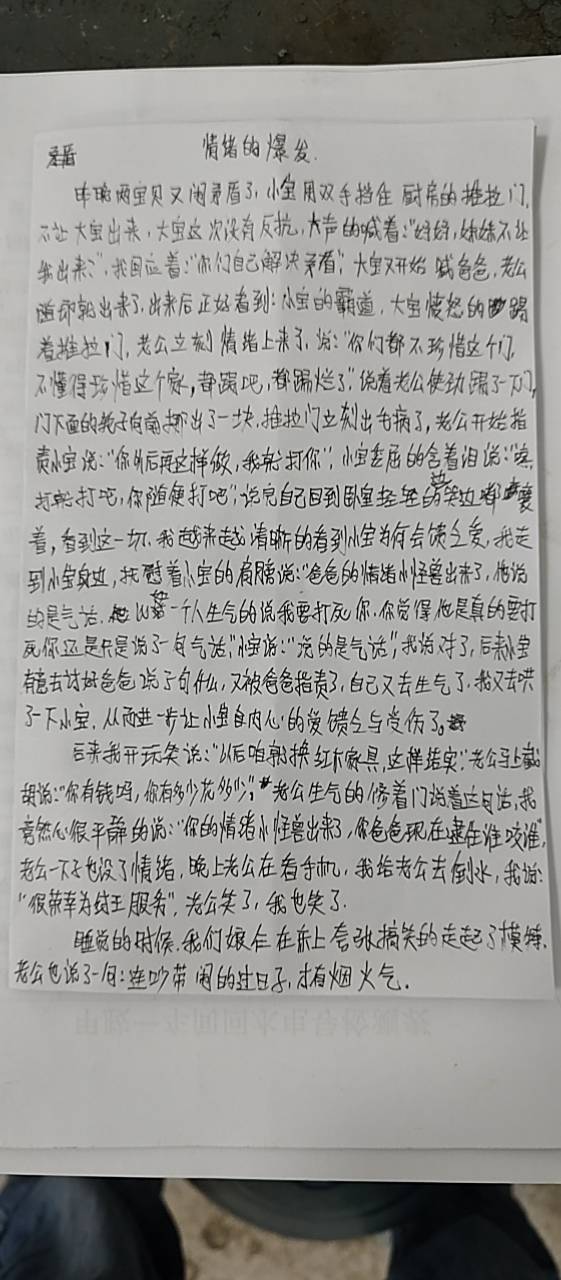 矛盾
情绪的爆发.
申璃两宝贝又闹矛盾了,小宝用双手挡住厨房的推拉门,
不让大宝出来,大宝这次没有反抗,大声的喊着:"妈妈,妹妹不让
我出来",我回应着:"你们自己解决矛盾",大宝又开始喊爸爸,老公
随即就出来了,出来后正好看到:小宝的霸道,大宝愤怒的踢
着推拉门,老公立刻情绪上来了,说:"你们都不珍惜这个门,
不懂得珍惜这个家,都踢吧,都踢烂了"说着老公使劲踢了一下门,
门下面的轮子向前挪出了一块,推拉门立刻出毛病了,老公开始指
责小宝说:"你以后再这样做,我就打你",小宝委屈的含着泪说:"
打就打吧,你随便打吧",说完自己回到卧室轻轻的
着,看到这一切,我越来越清晰的看到小宝为何会馈乏爱,我走
到小宝身边,抚慰着小宝的肩膀说:"爸爸的情绪小怪兽出来了,他说
的是气话.一个人生气的说我要打死你.你觉得他是真的要打
死你还是只是说了一句气话,"小宝说:"说的是气话",我说对了,后来小宝
有意去讨好爸爸说了句什么,又被爸爸指责了,自己又去生气了.我又去哄
了一下小宝.从而进一步让小宝自内心的爱馈乏与受伤了。
后来我开玩笑说:"以后咱都换红木家具,这样结实."老公马上
胡说:"你有钱吗,你有多少花多少",老公生气的修着门说着这句话,我
竟然心很平静的说:"你的情绪小怪兽出来了,你爸爸现在逮住谁咬谁",
老公一下子也没了情绪,晚上老公在看手机,我给老公去倒水,我说:
"很荣幸为国王服务".老公笑了,我也笑了.
睡觉的时候.我们娘仨在床上夸张搞笑的走起了模特.
老公也说了一句:连吵带闹的过日子,才有烟火气.